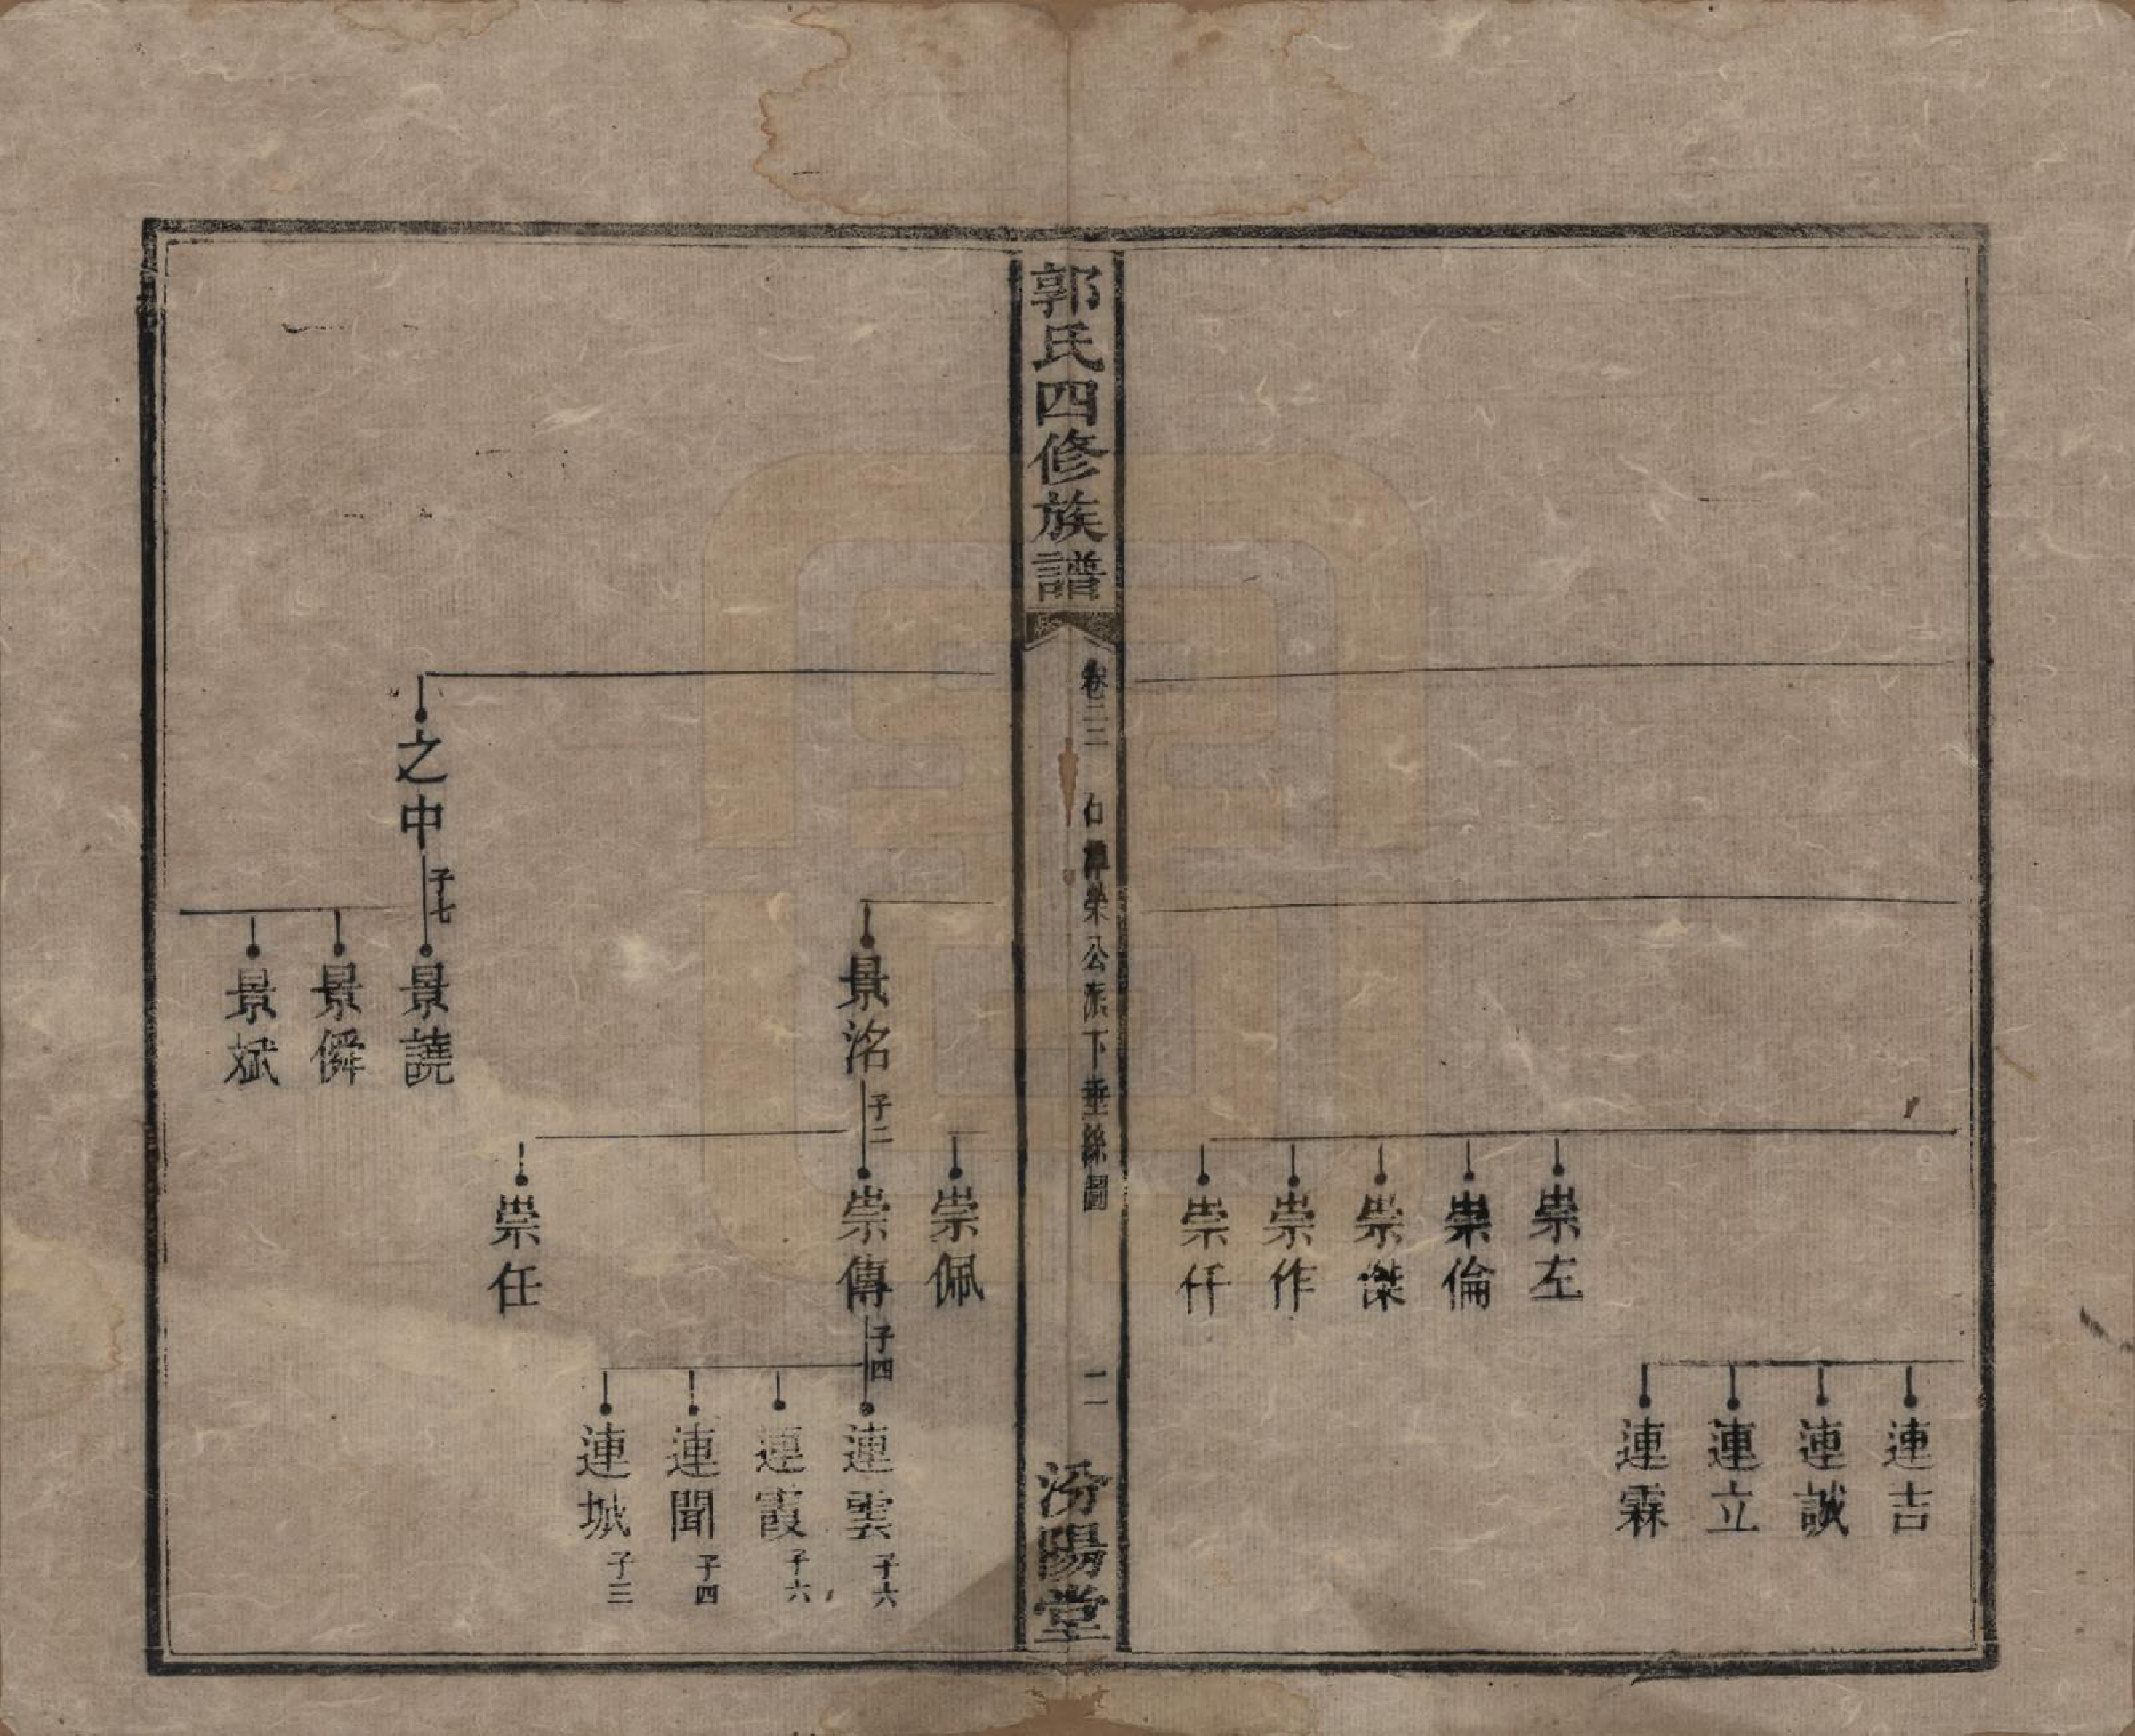 連吉
連誠
連立
連霖
崇左
崇倫
崇傑
崇作
崇仟
郭氏四修族譜
卷二二
榮公派下垂絲圖
二
汾陽堂
崇佩
景洺 子二
崇傳 子四
連雲 子六
連霞 子六
連聞 子四
連城 子三
崇任
之中 子七
景譊
景僢
景斌